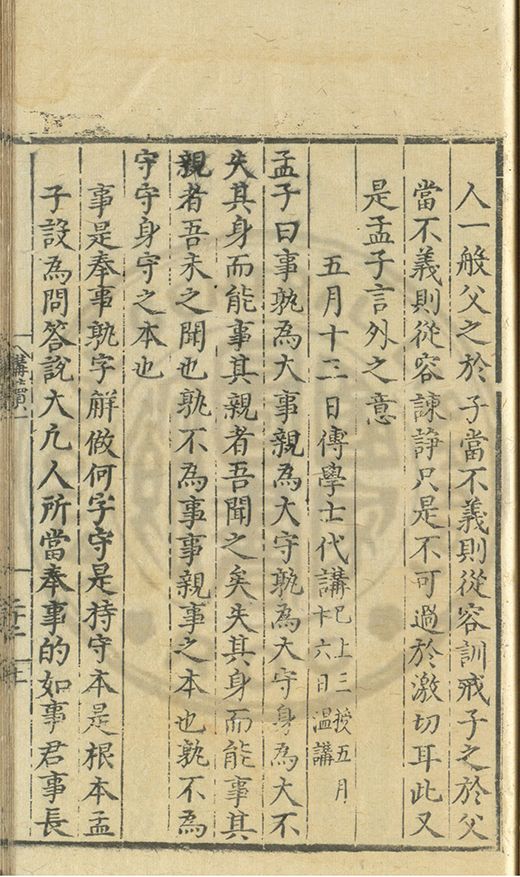 人一般父之於子當不義則從容訓戒子之於父
當不義則從容諫諍只是不可過於激切耳此又
是孟子言外之意
五月十二日傳學士代講已上三授五月
廿六日溫講
孟子曰事孰為大事親為大守孰為大守身為大不
失其身而能事其親者吾聞之矣失其身而能事其
親者吾未之聞也孰不為事事親事之本也孰不為
守守身守之本也
事是奉事孰字解做何字守是持守本是根本孟
子設為問答說大凢人所當奉事的如事君事長